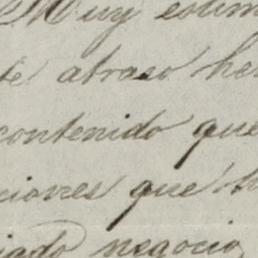 Muy estim
te atraso he
contenido que
ciones que h
iado negocio,